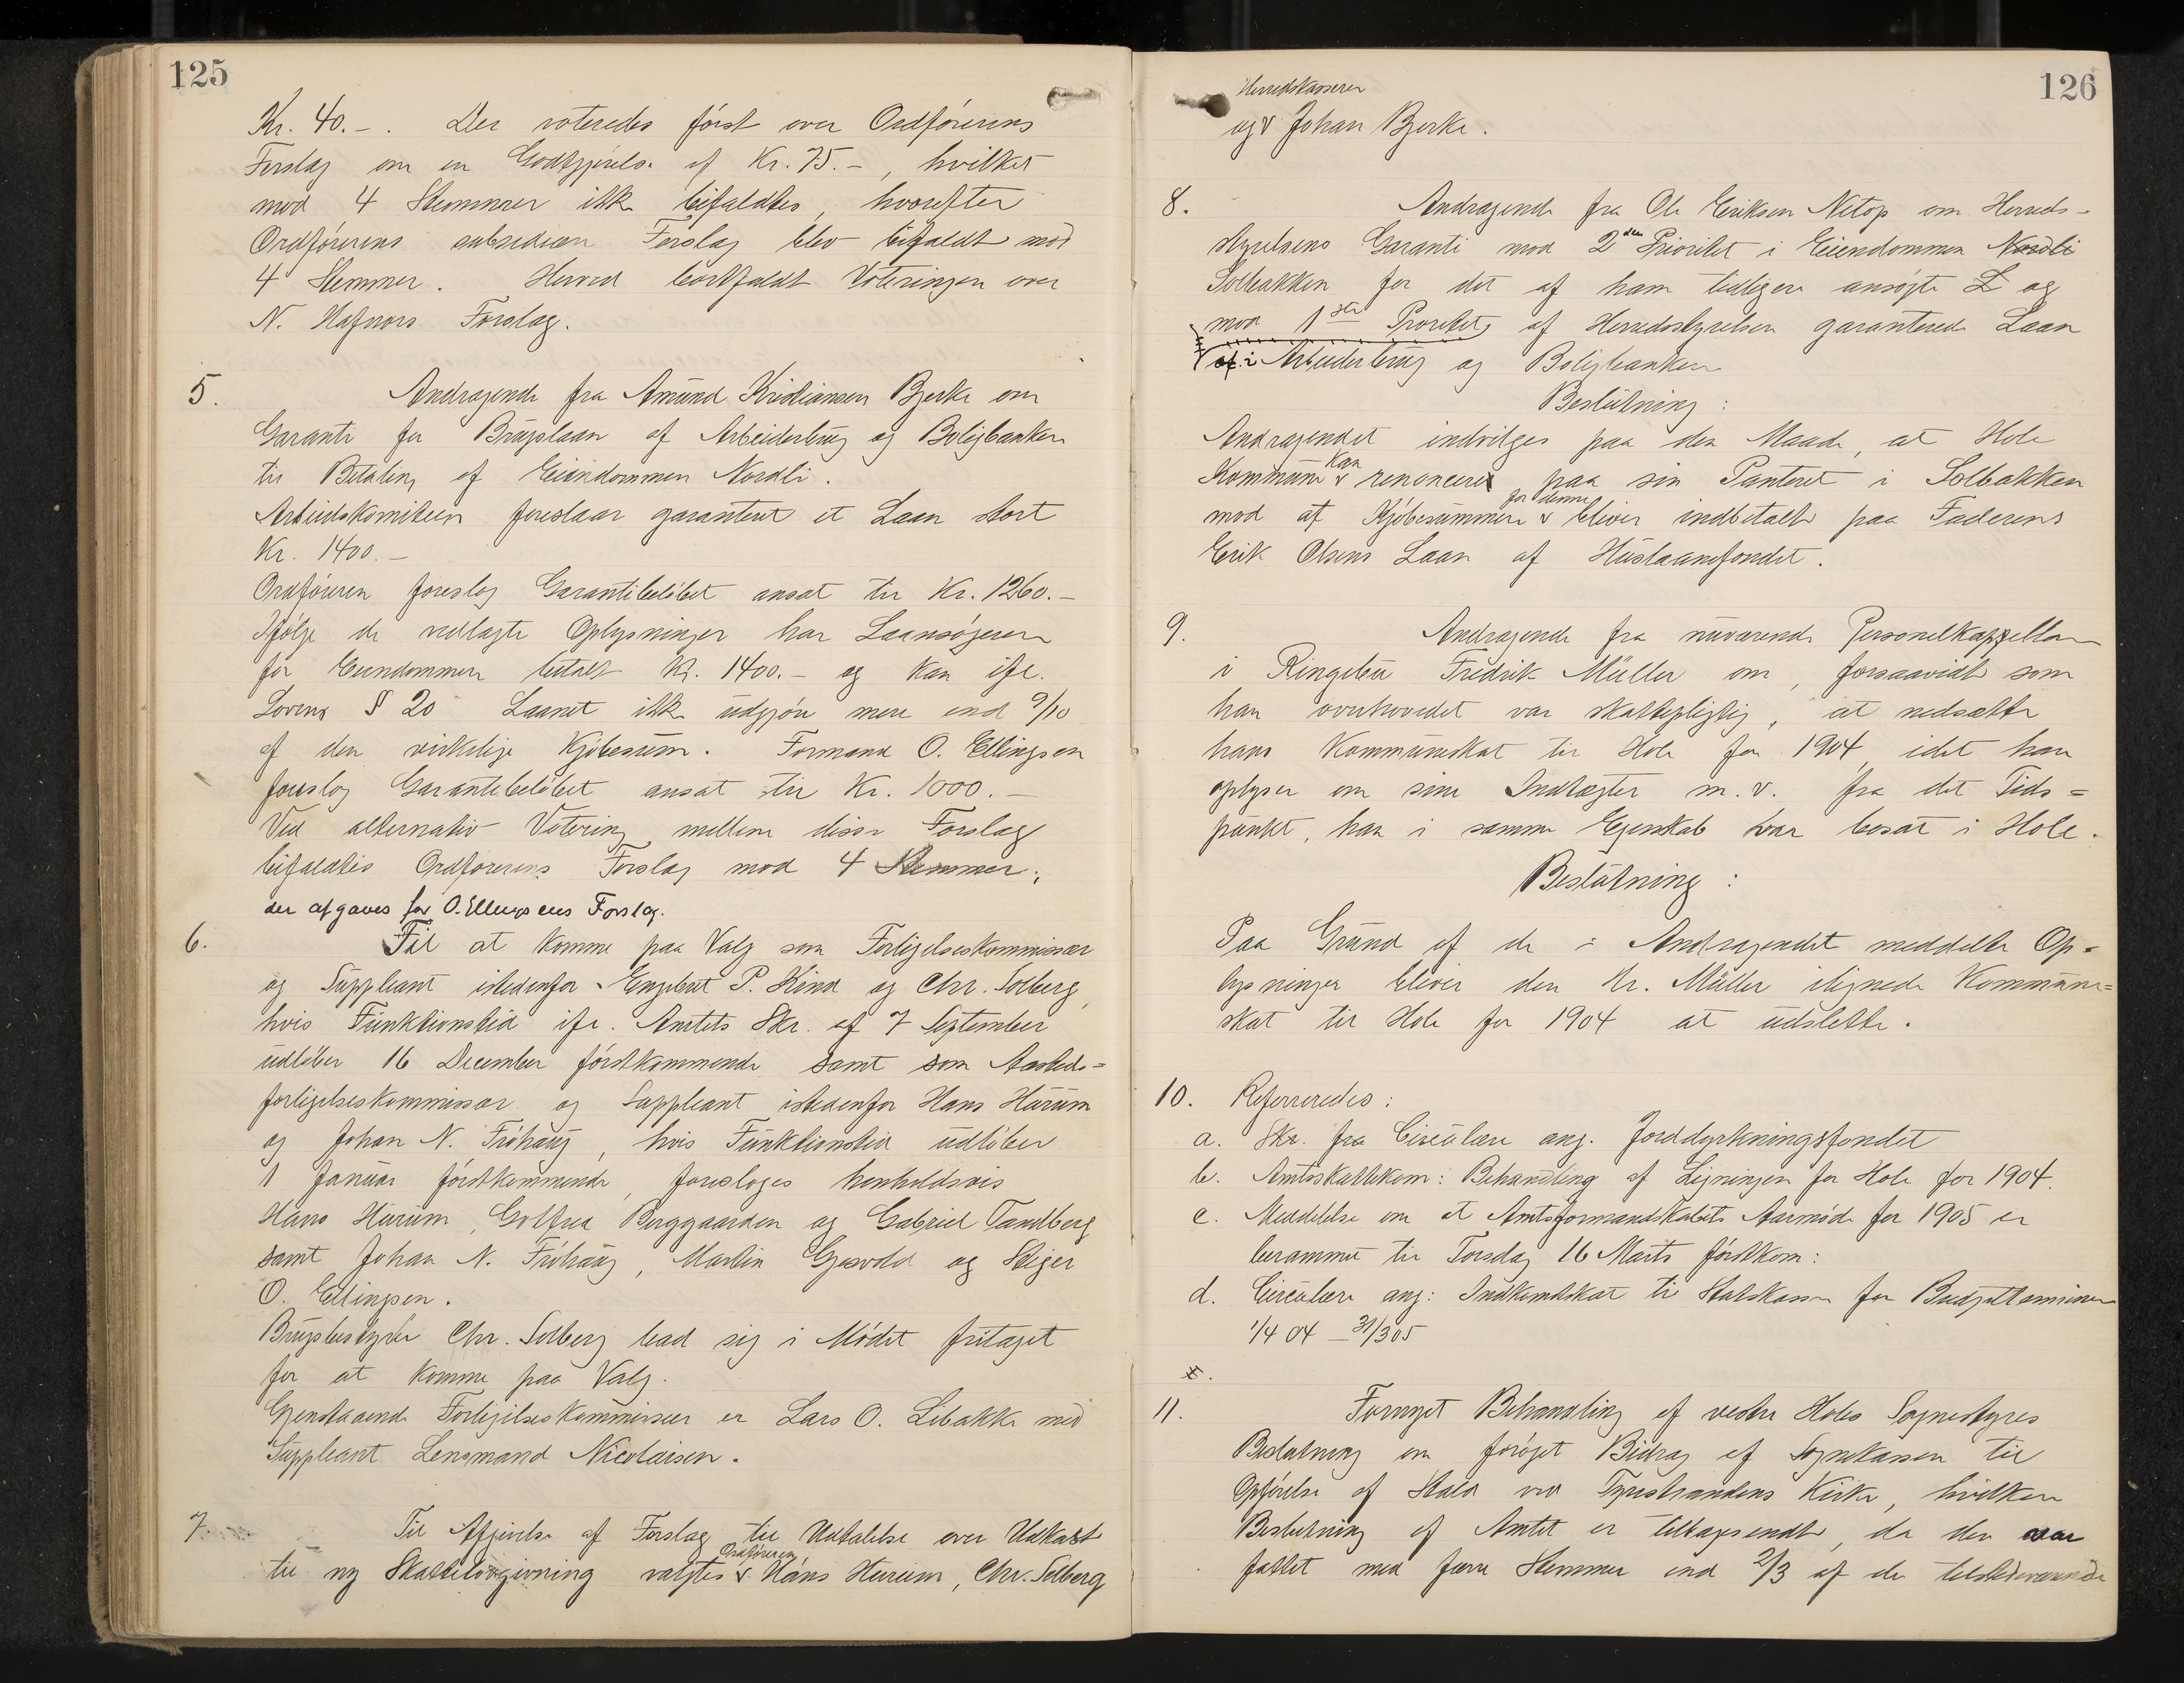 125
Kr. 40.-. Der voteredes först over Ordförerens
Forslag om en Godtgjörelse af Kr. 75.-, hvilket
mod 4 Stemmer ikke bifaldtes, hvorefter
Ordförerens subsidiær Forslag blev bifaldt mod
4 Stemmer. Herved bortfaldt Voteringen over
N. Hafnors Forslag.
5. Andragende fra Amund Kristiansen Bjerke om
Garanti for Brugslaan af Arbeiderbrug og Boligbanken
til Betaling af Eiendommen Nordli.
Arbeidskomiteen foreslaar garanteret et Laan stort
Kr. 1400.-
Ordföreren foreslog Garantibelöbet ansat til Kr. 1260.-
Ifölge de vedlagte Oplysninger har Laansögeren
for Eiendommen betalt Kr. 1400.- og kan ifl.
Lovens § 20 Laanet ikke udgjöre mere end 9/10
af den virkelige Kjöbesum. Formand O. Ellingsen
foreslog Garantibelöbet ansat til Kr. 1000.-
Ved alternativ Votering mellem disse Forslag
bifaldtes Ordförerens Forslag mod 4 Stemmer,
der afgaves for O. Ellingsens Forslag.
6. Til at komme paa Valg som Forligelseskommissær
og Suppleant istedenfor Engebret P. Hind og Chr. Solberg,
hvis Funktionstid ifl. Amtets Skr. af 7 September
udlöber 16 December förstkommende samt som Aasteds=
forligelseskommissær og Suppleant istedenfor Hans Hurum
og Johan N. Fröhaug, hvis Funktionstid udlöber
1 Januar förstkommende, foresloges henholdsvis
Hans Hurum, Golfred Berggaarden og Gabriel Tandberg
samt Johan N. Fröhaug, Martin Gjesvold og Helger
O. Ellingsen.
Brugsbestyrer Chr. Solberg bad sig i Mödet fritaget
for at komme paa Valg.
Gjenstaaende Forligelseskommissær er Lars O. Libakke med
Suppleant Lensmand Nicolaisen.
7. Til Afgivelse af Forslag til Udtalelse over Udkast
Ordföreren
til ny Skattelovgivning valgtes v Hans Hurum, Chr. Solberg
126
Herredskasserer
og v Johan Bjerke.
8. Andragende fra Ole Eriksen Netop om Herreds-
styrelsens Garanti mod 2den Prioritet i Eiendommen Nordli
Solbakken for det af ham tidligere ansögte L og
mod 1ste Prioritet af Herredsstyrelsen garanterede Laan
af i Arbeiderbrug og Boligbanken
Beslutning:
Andragendet indvilges paa den Maade, at Hole
kan
Kommune v renoncere paa sin Panteret i Solbakken
for denne
mod at Kjöbesummen v bliver indbetalt paa Faderens
Erik Olsens Laan af Huslaanefondet.
9. Andragende fra nuværende Personelkappellan
i Ringebu Fredrik Müller om, forsaavidt som
han overhovedet var skattepligtig, at nedsætte
hans Kommuneskat til Hole for 1904, idet han
oplyser om sine Indtægter m.v. fra det Tids=
punkt, han i samme Egenskab var bosat i Hole.
Beslutning:
Paa Grund af de i Andragendet meddelte Op=
lysninger bliver den Hr. Müller ilignede Kommune=
skat til Hole for 1904 at udslette.
10. Refereredes:
a. Skr. fra Circulære ang. Jorddyrkningsfondet
b. Amtsskattekom: Behandling af Ligningen for Hole for 1904.
c. Meddelelse om at Amtsformandskabets Aarmöde for 1905 er
berammet til Torsdag 16 Marts förstkom:
d. Circulære ang: Indkomstskat til Statskassen for Budgetterminen
1/4 04 - 31/3 05
11. Fornyet Behandling af vestre Holes Sognestyres
Beslutning om foröget Bidrag af Sognekassen til
Opförelse af Stald ved Tyristrandens Kirke, hvilken
Beslutning af Amtet er tilbagesendt, da den var
fattet med færre Stemmer end 2/3 af de tilstedeværende